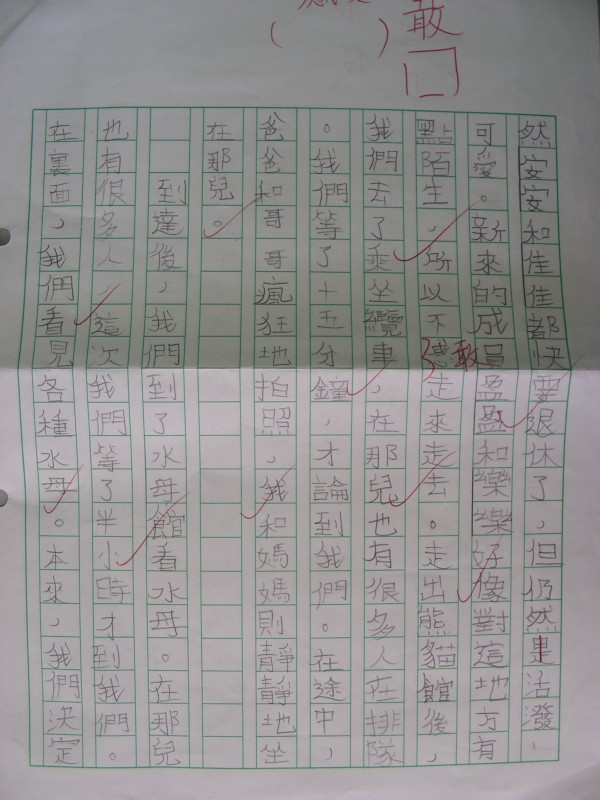 敢
( )
然安安和佳佳都快要退休了，但仍然是活潑，
可愛。新來的成員盈盈和樂樂好像對這地方有
點陌生，所以不感敢走來走去。走出熊貓館後，
我們去了乘坐纜車，在那兒也有很多人在排隊
。我們等了十五分鐘，才論到我們。在途中，
爸爸和哥哥瘋狂地拍照，我和媽媽則靜靜地坐
在那兒。
到達後，我們到了水母館看水母。在那兒
也有很多人，這次我們等了半小時才到我們。
在裏面，我們看見各種水母。本來，我們決定